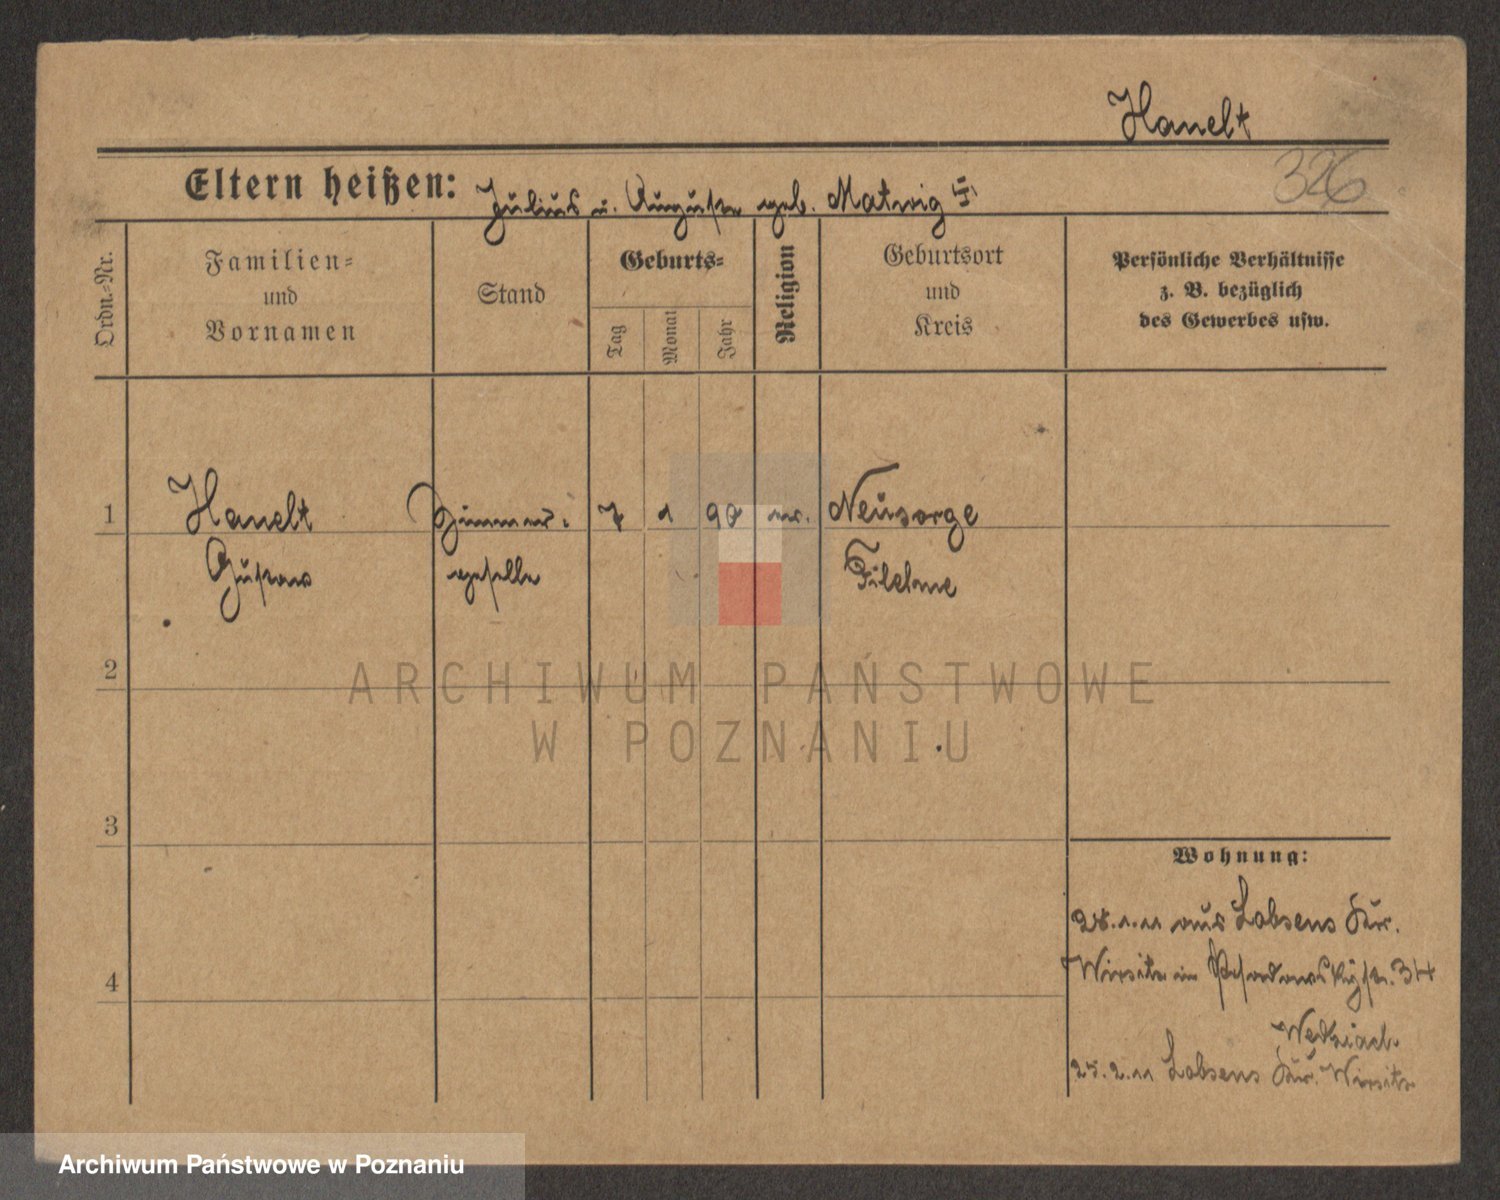 Hanelt
326
Eltern heißen: Julius u. Auguste geb. Matwig
Ordn.-Nr.
Familien-
und
Vornamen
Stand
Geburts-
Tag
Monat
Jahr
Religion
Geburtsort
und
Kreis
Persönliche Verhältnisse
z. B. bezüglich
des Gewerbes usw.
1 Hanelt Zimmer- 7 1 90 ev. Neusorge
Gustav geselle Filehne
2
ARCHIWUM PAŃSTWOWE
W POZNANIU
3
Wohnung:
28.1.11 aus Lobsens Kr.
4
Wirsitz in Posadowskystr. 34
25.2.11 Lobsens Kr. Wirsitz
Archiwum Państwowe w Poznaniu